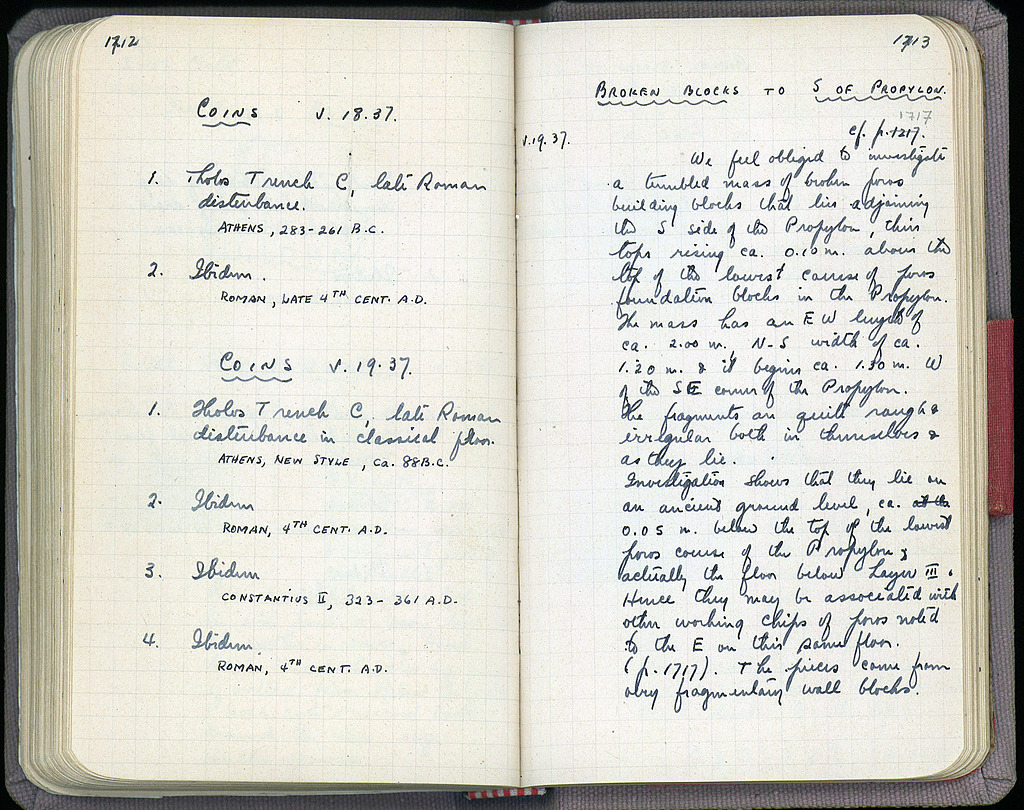 1712
COINS V. 18. 37.
1. Tholos Trench C, late Roman
disturbance.
ATHENS, 283-261 B.C.
2. Ibidem.
ROMAN, LATE 4TH CENT. A.D.
COINS V. 19. 37.
1. Tholos Trench C, late Roman
disturbance in classical floor.
ATHENS, NEW STYLE, ca. 88 B.C.
2. Ibidem
ROMAN, 4TH CENT. A.D.
3. Ibidem
CONSTANTIUS II, 323-361 A.D.
4. Ibidem.
ROMAN, 4TH CENT. A.D.
1713
BROKEN BLOCKS TO S OF PROPYLON.
1717
V.19.37. cf. p. 1217.
We feel obliged to investigate
a tumbled mass of broken poros
building blocks that lies adjoining
the S side of the Propylon, their
tops rising ca. 0.10 m. above the
top of the lowest course of poros
foundation blocks in the Propylon.
The mass has an EW length of
ca. 2.00 m., N-S width of ca.
1.20 m. & it begins ca. 1.30 m. W
of the SE corner of the Propylon.
The fragments are quite rough &
irregular both in themselves &
as they lie.
Investigation shows that they lie on
an ancient ground level, ca. at the
0.05 m. below the top of the lowest
poros course of the Propylon &
actually the floor below Layer III.
Hence they may be associated with
other working chips of poros noted
to the E on this same floor.
(p. 1717). The pieces come from
very fragmentary wall blocks.